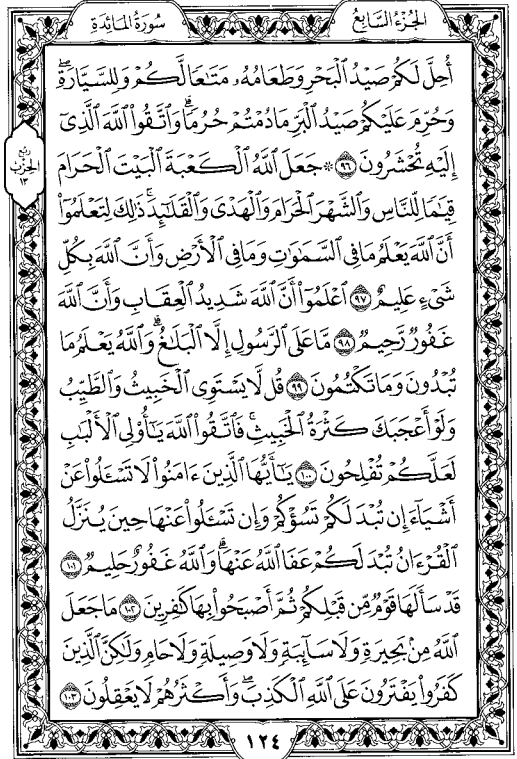 الجُزءُ السَّابِعُ
سُورَةُ المَائِدَةِ
أُحِلَّ لَكُمۡ صَيۡدُ ٱلۡبَحۡرِ وَطَعَامُهُۥ مَتَٰعٗا لَّكُمۡ وَلِلسَّيَّارَةِۖ
وَحُرِّمَ عَلَيۡكُمۡ صَيۡدُ ٱلۡبَرِّ مَا دُمۡتُمۡ حُرُمٗاۗ وَٱتَّقُواْ ٱللَّهَ ٱلَّذِيٓ
إِلَيۡهِ تُحۡشَرُونَ ۝٩٦ ۞ جَعَلَ ٱللَّهُ ٱلۡكَعۡبَةَ ٱلۡبَيۡتَ ٱلۡحَرَامَ
رُبع
الحِزب
١٣
قِيَٰمٗا لِّلنَّاسِ وَٱلشَّهۡرَ ٱلۡحَرَامَ وَٱلۡهَدۡيَ وَٱلۡقَلَٰٓئِدَۚ ذَٰلِكَ لِتَعۡلَمُوٓاْ
أَنَّ ٱللَّهَ يَعۡلَمُ مَا فِي ٱلسَّمَٰوَٰتِ وَمَا فِي ٱلۡأَرۡضِ وَأَنَّ ٱللَّهَ بِكُلِّ
شَيۡءٍ عَلِيمٌ ۝٩٧ ٱعۡلَمُوٓاْ أَنَّ ٱللَّهَ شَدِيدُ ٱلۡعِقَابِ وَأَنَّ ٱللَّهَ
غَفُورٞ رَّحِيمٞ ۝٩٨ مَّا عَلَى ٱلرَّسُولِ إِلَّا ٱلۡبَلَٰغُۗ وَٱللَّهُ يَعۡلَمُ مَا
تُبۡدُونَ وَمَا تَكۡتُمُونَ ۝٩٩ قُل لَّا يَسۡتَوِي ٱلۡخَبِيثُ وَٱلطَّيِّبُ
وَلَوۡ أَعۡجَبَكَ كَثۡرَةُ ٱلۡخَبِيثِۚ فَٱتَّقُواْ ٱللَّهَ يَٰٓأُوْلِي ٱلۡأَلۡبَٰبِ
لَعَلَّكُمۡ تُفۡلِحُونَ ۝١٠٠ يَٰٓأَيُّهَا ٱلَّذِينَ ءَامَنُواْ لَا تَسۡـَٔلُواْ عَنۡ
أَشۡيَآءَ إِن تُبۡدَ لَكُمۡ تَسُؤۡكُمۡ وَإِن تَسۡـَٔلُواْ عَنۡهَا حِينَ يُنَزَّلُ
ٱلۡقُرۡءَانُ تُبۡدَ لَكُمۡ عَفَا ٱللَّهُ عَنۡهَاۗ وَٱللَّهُ غَفُورٌ حَلِيمٞ ۝١٠١
قَدۡ سَأَلَهَا قَوۡمٞ مِّن قَبۡلِكُمۡ ثُمَّ أَصۡبَحُواْ بِهَا كَٰفِرِينَ ۝١٠٢ مَا جَعَلَ
ٱللَّهُ مِنۢ بَحِيرَةٖ وَلَا سَآئِبَةٖ وَلَا وَصِيلَةٖ وَلَا حَامٖ وَلَٰكِنَّ ٱلَّذِينَ
كَفَرُواْ يَفۡتَرُونَ عَلَى ٱللَّهِ ٱلۡكَذِبَۖ وَأَكۡثَرُهُمۡ لَا يَعۡقِلُونَ ۝١٠٣
١٢٤